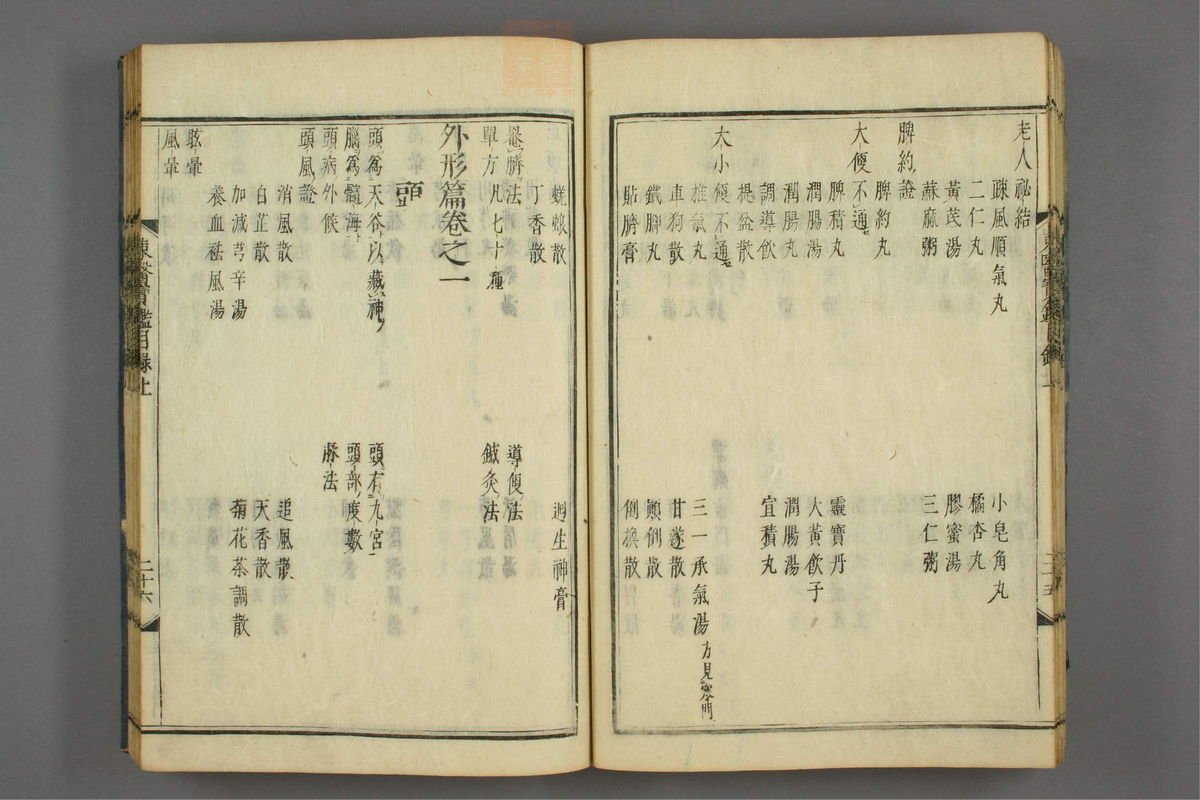 老人祕結
疎風順氣丸 小皂角丸
二仁丸 橘杏丸
黃芪湯 膠蜜湯
蘇麻粥 三仁粥
脾約證
脾約丸
大便不通
脾積丸 靈寶丹
潤腸湯 大黃飲子
潤腸丸 潤腸湯
調導飮 宜積丸
提盆散
大小便不通
推氣丸 三一承氣湯 方見寒門
車狗散 甘遂散
鐵脚丸 顚倒散
貼臍膏 倒換散
蜣蜋散 廻生神膏
丁香散
罨臍法 導便法
單方 凡七十種 鍼灸法
外形篇卷之一
頭
頭爲天谷以藏神 頭有九宮
腦爲髓海 頭部度數
頭病外候 脉法
頭風證
消風散 追風散
白芷散 天香散
加減芎辛湯 菊花茶調散
養血祛風湯
眩暈
風暈
東醫寶鑑目錄上 二十六